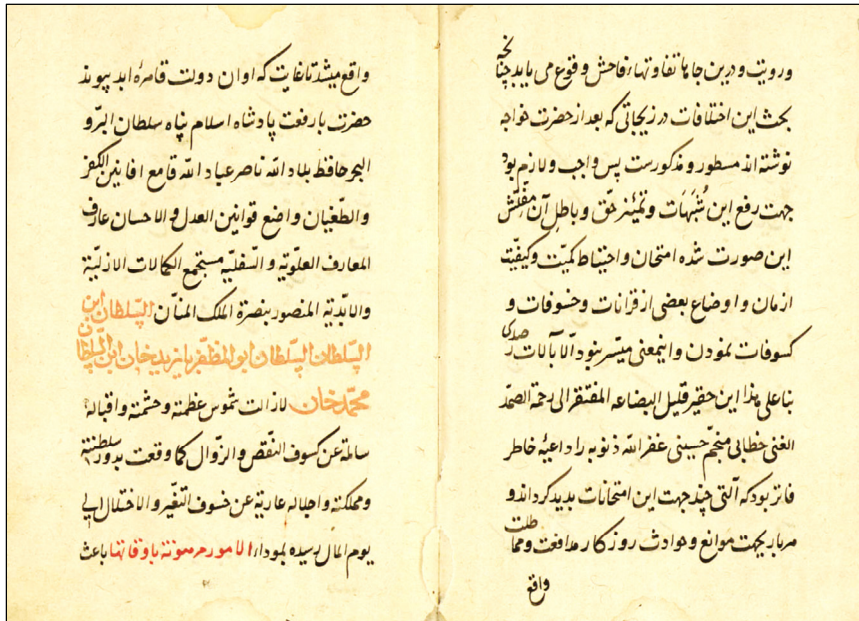 و رویت و درین جاها تفاوتهاء فاحش وقوع می یابد چنانچه
بحث این اختلافات در زیجاتی که بعد از حضرت خواجه
نوشته اند مسطور و مذکورست پس واجب و لازم بود
جهت رفع این شُبَهَات و تمییز حق و باطل آن
این صورت شده امتحان و احتیاط کمیّت و کیفیّت
ازمان و اوضاع بعضی از قرانات و خسوفات و
کسوفات نمودن و اینمعنی میسّر نبود الّا بآلات رصدی
بنا علی هذا این حقیر قلیل البضاعه المفتقر الی رحمة الصمد
الغنی خطابی منجّم حسینی غفر الله ذنوبه را داعیهٔ خاطر
فاتر بود که آلتی چند جهت این امتحانات بدید کرداند و
هر بار بجهت موانع و حوادث روزکار مدافعت و مماطلت
واقع
واقع میشد تا غایت که اوان دولت قاهرهٔ ابد پیوند
حضرت با رفعت پادشاه اسلام پناه سلطان البرّ و
البحر حافظ بلاد الله ناصر عباد الله قامع افانین الکفر
و الطّغیان واضع قوانین العدل و الاحسان عارف
المعارف العلویّة و السّفلیّة مستجمع الکمالات الازلیّة
و الابدیّة المنصور بنصرة الملک المنّان السّلطان ابن
السّلطان السّلطان ابو المظفّر بایزید خان ابن السّلطان
محمّد خان لازالت شموس عظمته و حشمته و اقباله
سالمة عن کسوف النّقص و الزّوال کما وقعت بدور سلطنته
و مملکته و اجلاله عاریة عن خسوف التغیّر و الاختلال الی
یوم المآل رسیده بمودای الامور مرهونة باوقاتها باعث